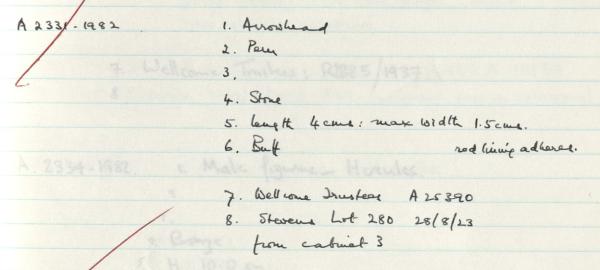 A 2331-1982 1. Arrowhead
2. Peru
3.
4. Stone
5. length 4cms: max width 1.5cms.
6. Buff red lining adheres.
7. Wellcome Trustees A 25390
8. Stevens Lot 280 28/8/23
from cabinet 3